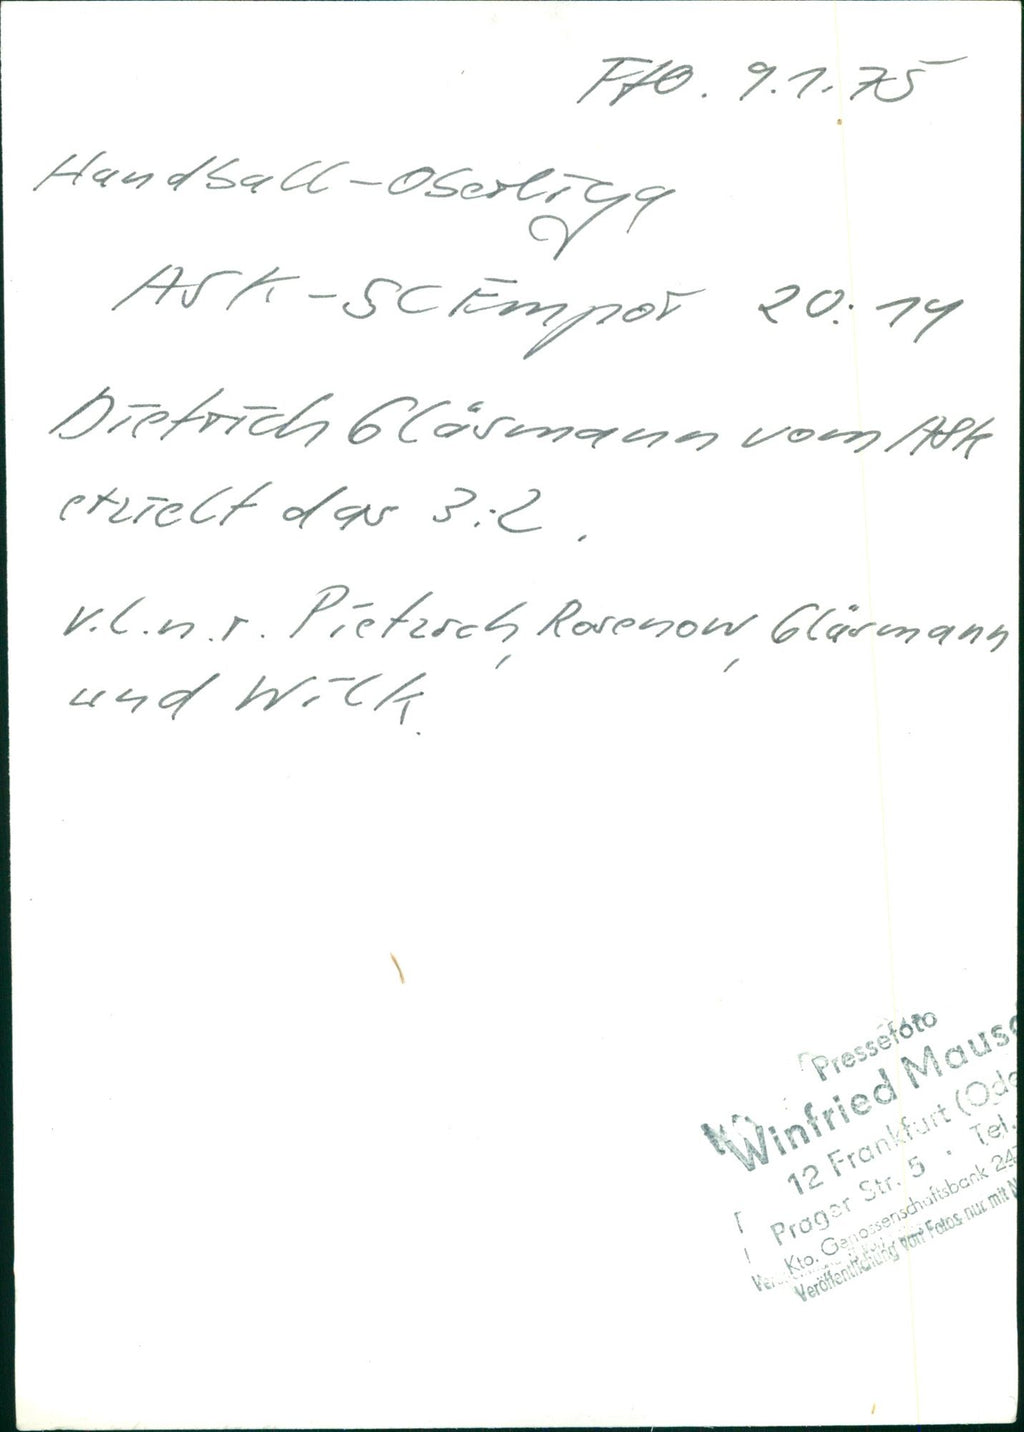 FfO. 9.1.75
Handball-Oberliga
ASK - SC Empor 20:14
Dietrich Gläsmann vom ASK
erzielt das 3:2.
v.l.n.r. Pietzsch, Rosenow, Gläsmann
und Wilk.
Pressefoto
Winfried Maus
12 Frankfurt (Ode
Prager Str. 5 · Tel.
Kto. Genossenschaftsbank 247
Veröffentlichung von Fotos nur mit